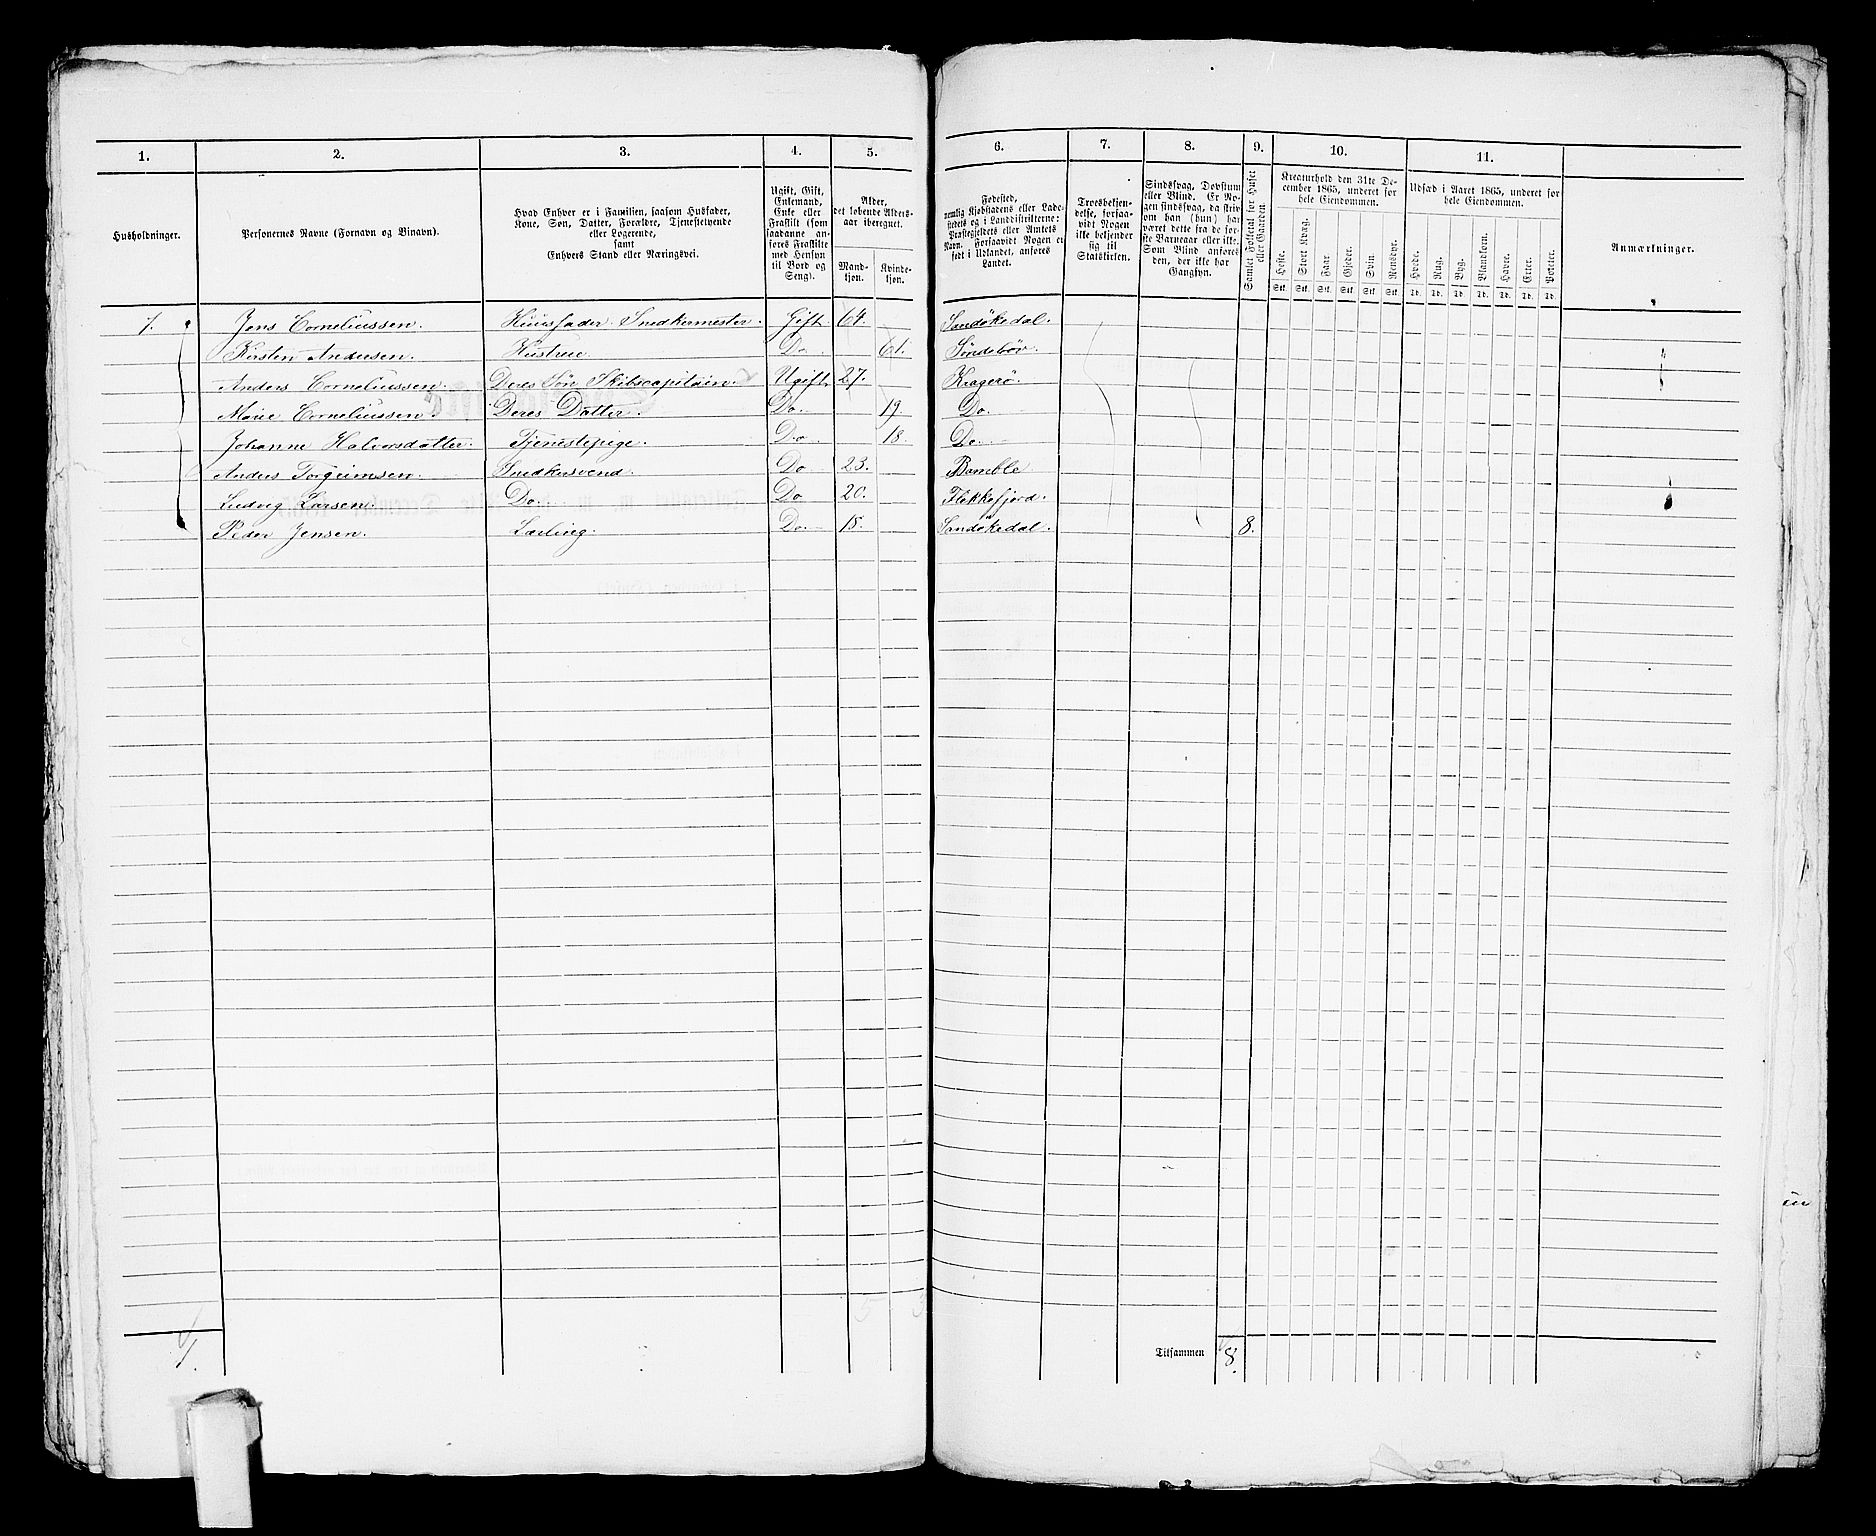 1. 2. 3. 4. 5. 6. 7. 8. 9. 10. 11.
Husholdninger.
Personernes Navne (Fornavn og Binavn).
Hvad Enhver er i Familien, saasom Husfader,
Kone, Søn, Datter, Forældre, Tjenestetyende
eller Logerende,
samt
Enhvers Stand eller Næringsvei.
Ugift, Gift,
Enkemand,
Enke eller
Fraskilt (som
saadanne an-
føres Fraskilte
med Hensyn
til Bord og
Seng).
Alder,
det løbende Alders-
aar iberegnet.
Mand-
kjøn.
Kvinde-
kjøn.
Fødested,
nemlig Kjøbstadens eller Lade-
stedets og i Landdistrikterne:
Præstegjeldets eller Amtets
Navn. Forsaavidt Nogen er
født i Udlandet, anføres
Landet.
Troesbekjen-
delse, forsaa-
vidt Nogen
ikke bekjender
sig til
Statskirken.
Sindssvag, Døvstum
eller Blind. Er No-
gen sindssvag, da skriv
om han (hun) har
været dette fra de før-
ste Barneaar eller ikke.
Som Blind anføres
den, der ikke har
Gangsyn.
Samlet Folketal for Huset
eller Gaarden.
Kreaturhold den 31te De-
cember 1865, underet for
hele Eiendommen.
Heste. Stort Kvæg. Faar. Gjeder. Svin. Rensdyr.
Stk. Stk. Stk. Stk. Stk. Stk.
Udsæd i Aaret 1865, underet for
hele Eiendommen.
Hvede. Rug. Byg. Blandkorn. Havre. Erter. Poteter.
Td. Td. Td. Td. Td. Td. Td.
Anmærkninger.
1. Jens Corneliussen. Huusfader. Snedkermester. Gift. 64. Sandökedal.
Kirsten Andersen. Hustrue. Do. 61. Söndeböv.
Anders Corneliussen. Deres Sön Skibscapitain. Ugift 27. Kragerö.
Marie Corneliussen. Deres Datter. Do. 19. Do.
Johanne Halvorsdatter. Tjenestepige. Do 18. Do.
Anders Torgeimsen. Snedkersvend. Do 23. Bamble
Ludvig Larsen. Do. Do 20. Flekkefjord.
Peder Jensen. Lærling. Do. 18. Sandökedal. 8.
1.
5 3
Tilsammen 8.